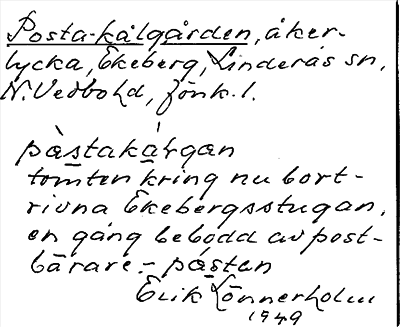 Posta-kålgården, åker-
lycka, Ekeberg, Linderås sn,
N. Vedbohd, Jönk. l.
pàstakálgan
tomten kring nu bort-
rivna Ekebergsstugan,
en gång bebodd av post-
bärare. – pástan
Erik Lönnerholm
1949